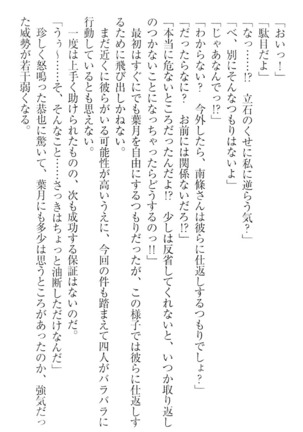 「おいっ！」
「駄目だよ」
「なっ……!?　立石のくせに私に逆らう気？」
「べ、別にそんなつもりはないよ」
「じゃあなんでっ!?」
「わからない？　今外したら、南條さんは彼らに仕返しするつもりでしょ？」
「だったらなに？　お前には関係ないだろ!?」
「本当に危ないところだったんだよ!?　少しは反省してくれないと、いつか取り返し
のつかないことになっちゃったらどうするのっ!!」
最初はすぐにでも葉月を自由にするつもりだったが、この様子では彼らに仕返しす
るために飛び出しかねない。
まだ近くに彼らがいる可能性が高いうえに、今回の件も踏まえて四人がバラバラに
行動しているとも思えない。
一度は上手く助けられたものの、次も成功する保証はないのだ。
「うぅ〜……そ、そんなこと……さっきはちょっと油断しただけなんだ」
珍しく怒鳴った恭也に驚いて、葉月にも多少は思うところがあったのか、強気だっ
た威勢が若干弱くなる。